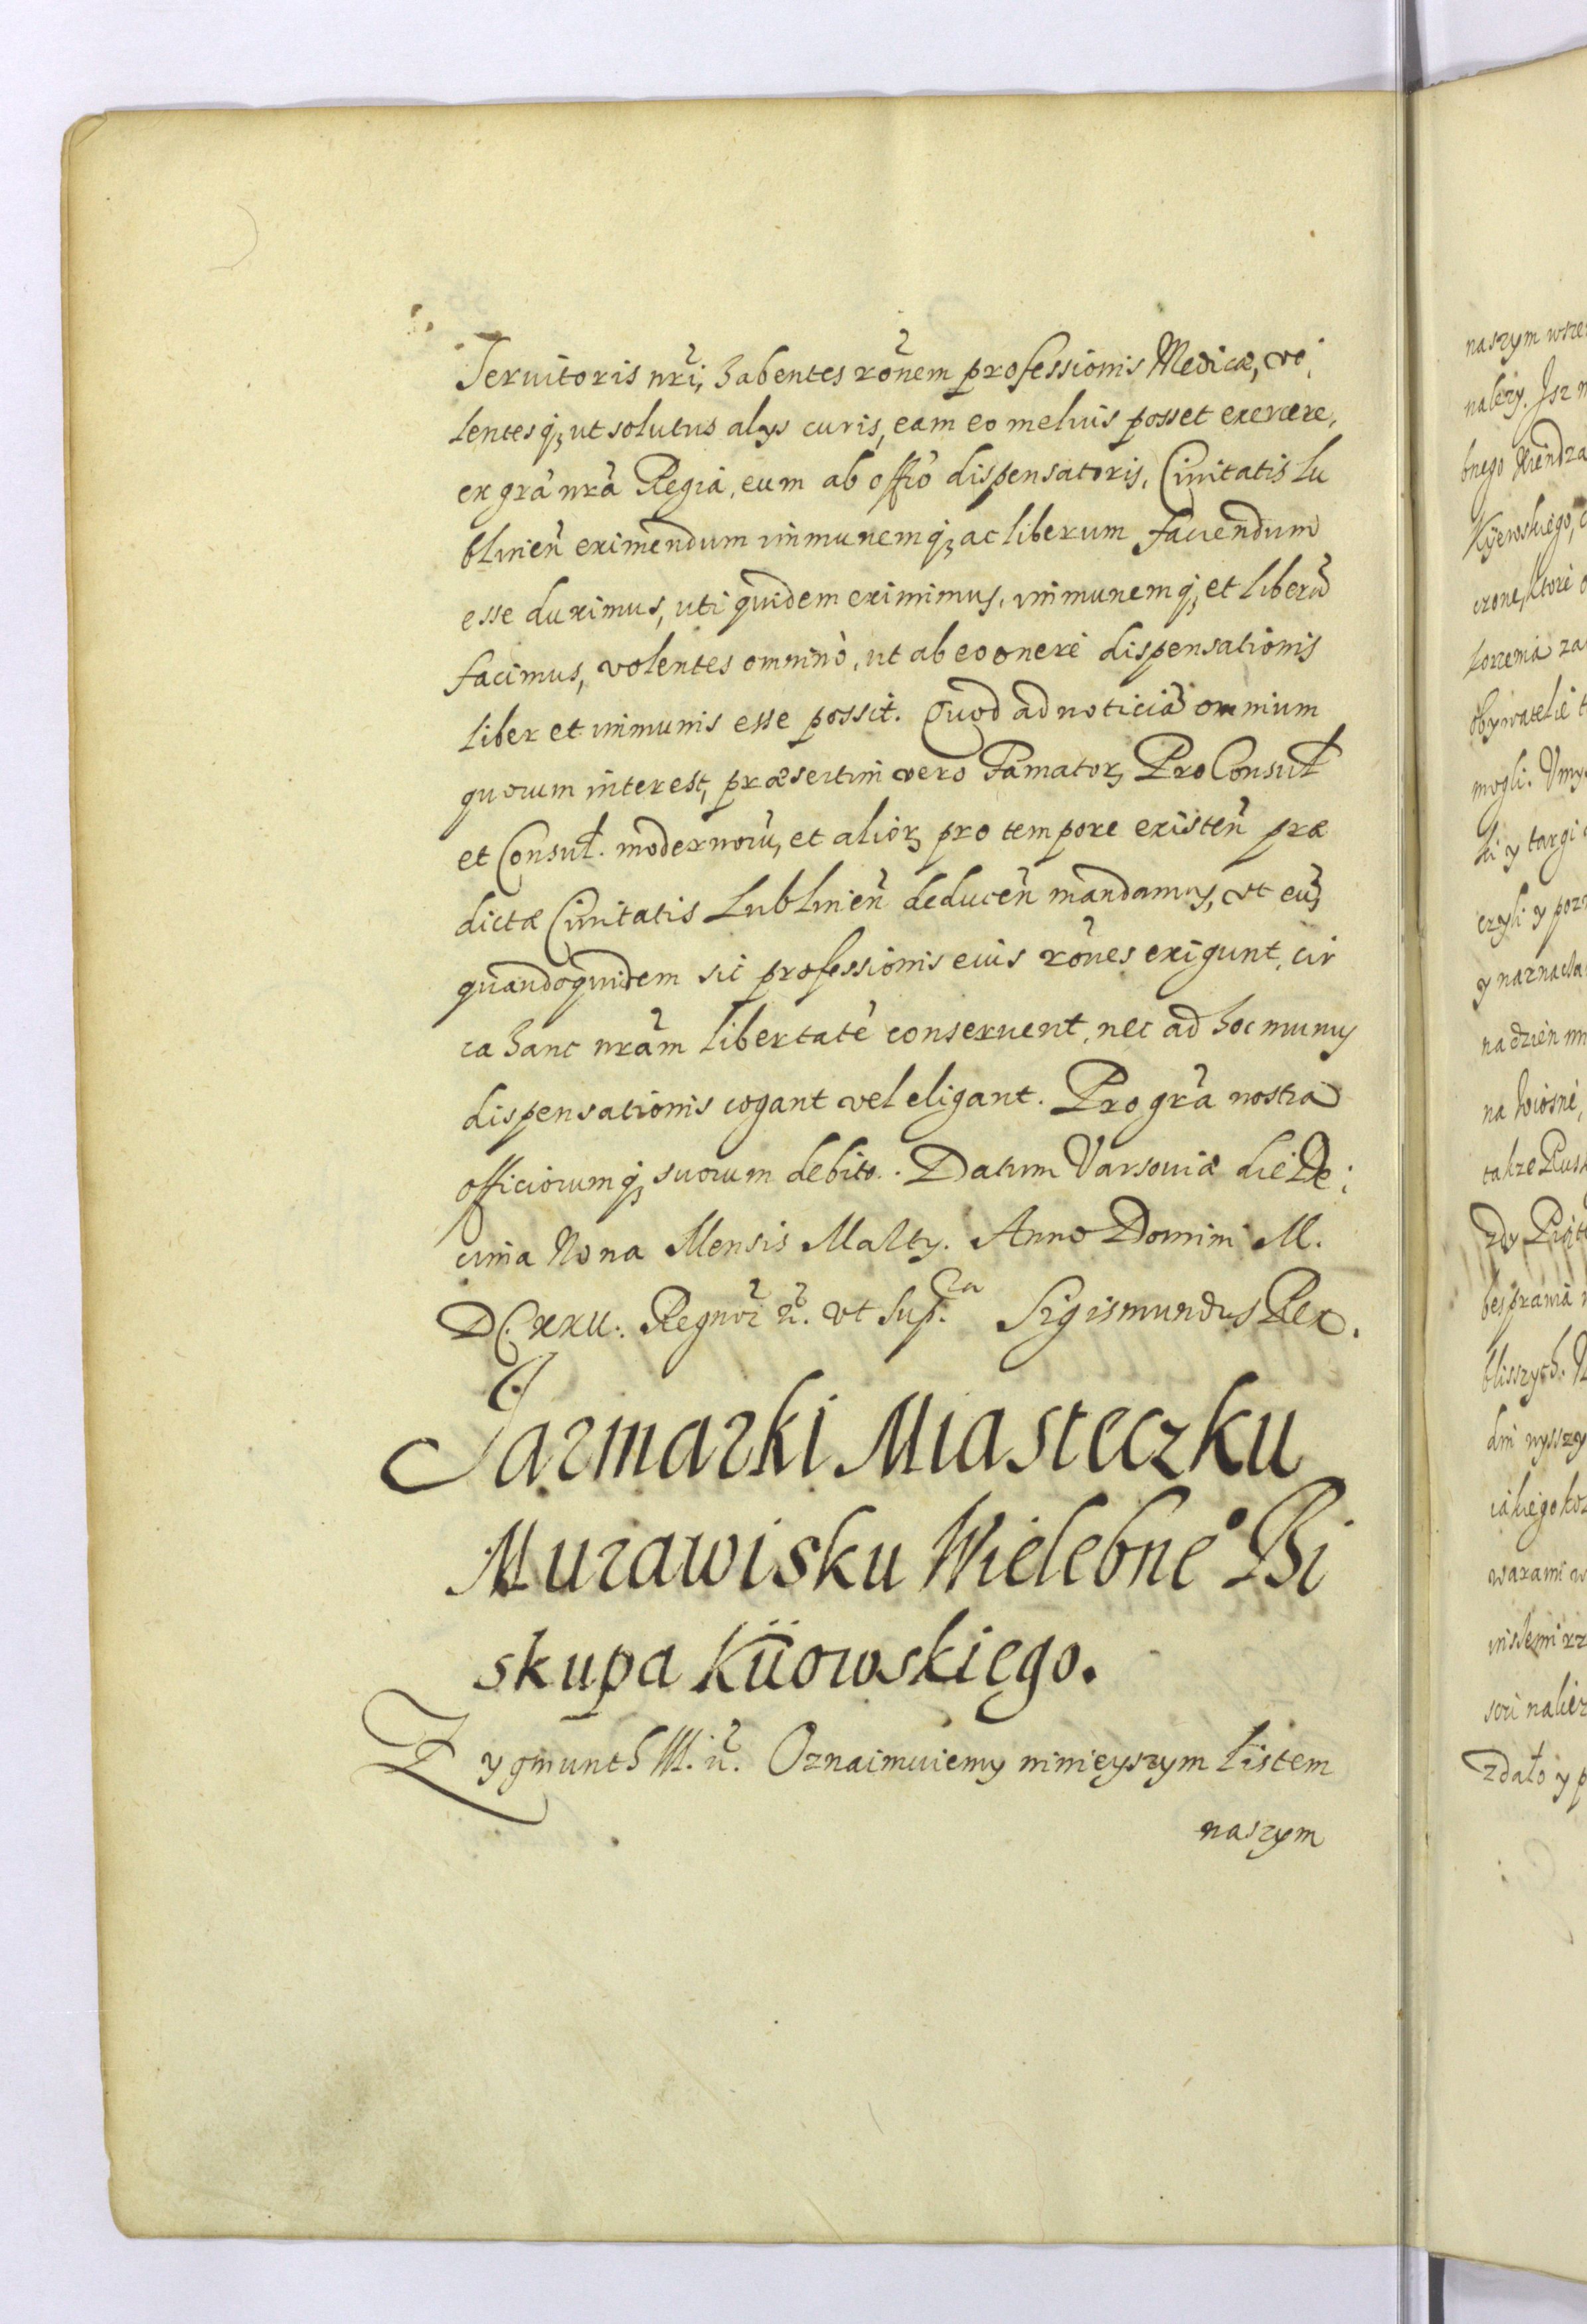 Seruitoris nr̃i, habentes rõnem professionis Medicæ, vo:
lentesq́; ut solutus alys curis, eam eo melius posset exercere,
ex grã nrã Regia, eum ab offõ dispensatoris, Ciuitatis Lu
blineñ eximendum immunemq́; ac liberum faciendum
esse duximus, uti quidem eximimus, immunemq́; et liberũ
facimus, volentes omnino, ut ab eo onere dispensationis
liber et immunis esse possit. Quod ad noticiã omnium
quorum interest, præsertim vero Famatorꝫ ProConsul̃
et Consul̃. modernorũ, et aliorꝫ pro tempore existeñ præ
dictæ Ciuitatis Lublineñ deduceñ mandamus, vt eũ,
quandoquidem sic professionis eius rõnes exigunt, cir
ca hanc nrãm libertatẽ conseruent, nec ad hoc munus
dispensationis cogant vel eligant. Pro grã nostra
officiorumq́; suorum debito. Datum Varsouiæ die De:
cima Nona Mensis Maity. Anno Domini M.
DC.XXII. Regnoŕ ñ. vt sup.ra Sigismundus Rex.
Jarmarki Miasteczku
Murawisku Wielebneº Bi
skupa Kiiowskięgo.
Zygmunth III. ñ. Oznaimuiemy ninieyszym Listem
naszym
naszym wsze
należy. Isz
bnego Xiendza
Kijewskiego,
czone, ktore
torzenia za
obywatelie t
mogli. Vmy
ki y targi
czyli y poz
y naznacza
na dzien
na Wiosne,
takze Rus
bes prawa
blisszych.
dni wysszy
iakiego ko
warami w
zdało y p